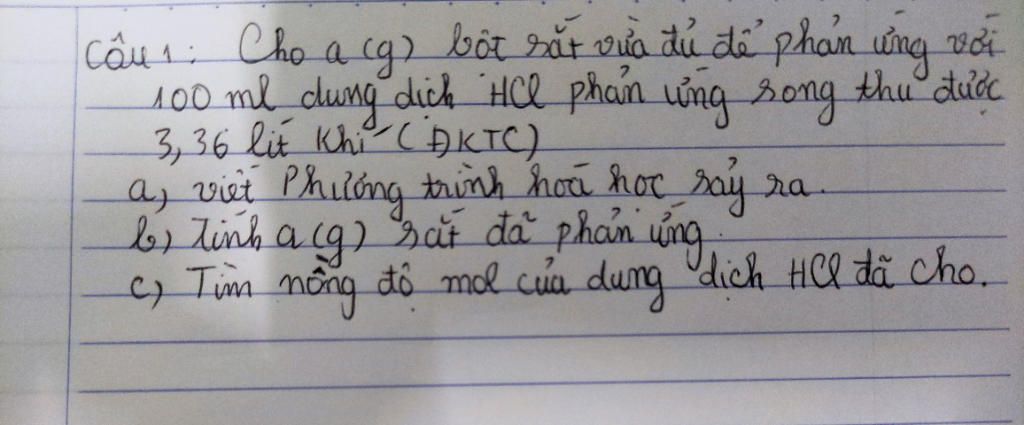 Câu 1: Cho a (g) bột sắt vừa đủ để phản ứng với
100 ml dung dịch HCl phản ứng song thu được
3,36 lít khí (ĐKTC)
a, viết Phương trình hoá học sảy ra.
b) Tính a (g) sắt đã phản ứng.
c, Tìm nồng độ mol của dung dịch HCl đã cho.